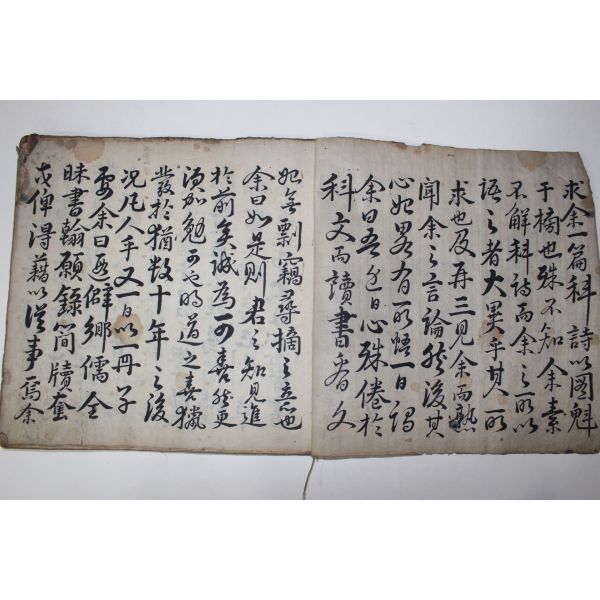 求余一篇科詩以圖魁
于橘也殊不知余素
不解科詩而余之所以
語之者大異乎其人所
求也及再三見余而熟
聞余之言論然後其
心始畧有所悟一日謁
余曰吾近日心殊倦於
科文而讀書看文
始無剽竊尋摘之意也
余曰如是則君之知見進
於前矣誠為可喜然更
須加勉可也明道之喜獵
發於猶數十年之後
况凡人乎又一日以一冊子
要余曰遐僻鄉儒全
昧書翰願錄簡牘套
式俾得藉以從事焉余